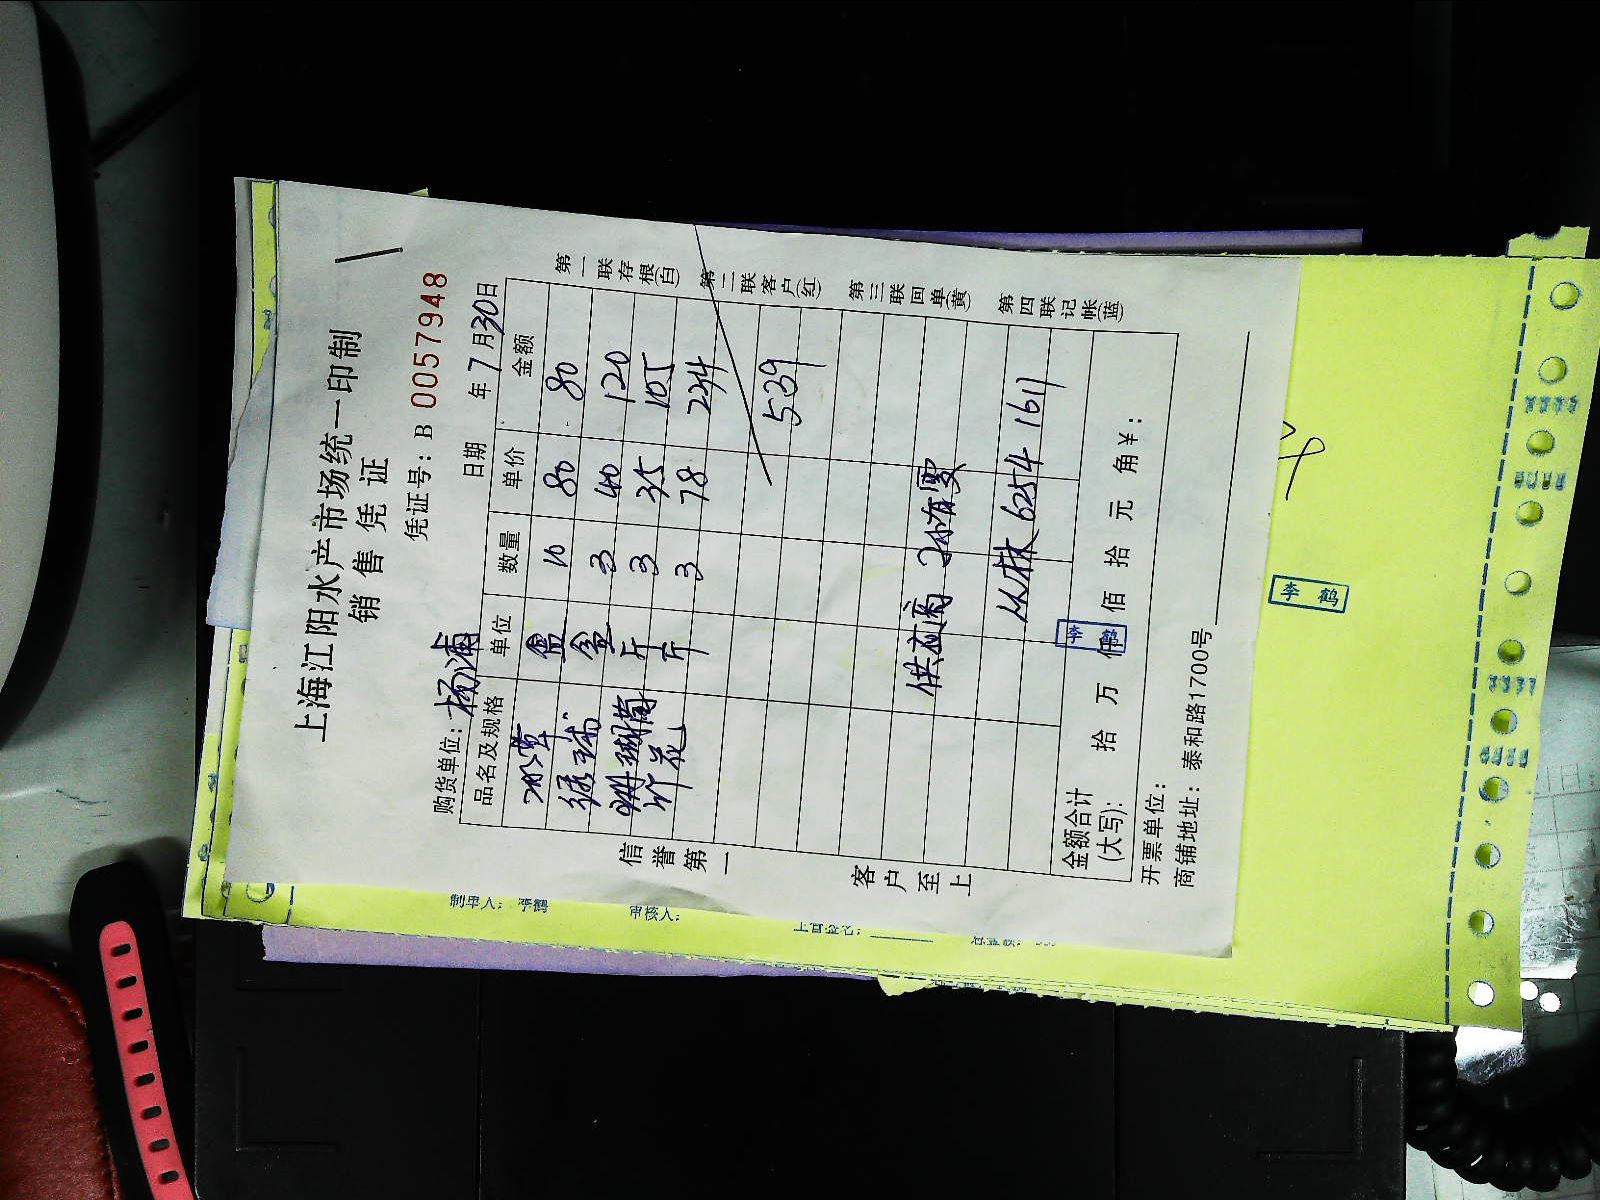 上海江阳水产市场统一印制
销售凭证
凭证号：B 0057948
购货单位：杨浦 日期 年 7月30日
品名及规格 单位 数量 单价 金额
冰草 盒 10 80 80
盒 3 40 120
珊瑚菊 斤 3 35 105
竹花 斤 3 78 234
539
供应商 孙有雯
丛林 6254 1611
金额合计
(大写)： 拾 万 仟 佰 拾 元 角 ¥：
李鹤
开票单位：
商铺地址：泰和路1700号
信誉第一
客户至上
第一联存根(白)
第二联客户(红)
第三联回单(黄)
第四联记帐(蓝)
李鹤
制单人：李鹤
审核人：